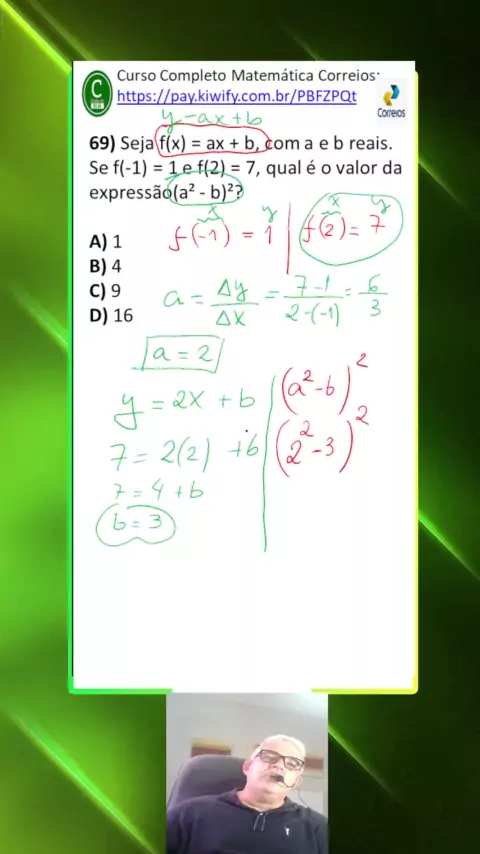 Curso Completo Matemática Correios:
https://pay.kiwify.com.br/PBFZPQt
Correios
y = ax + b
69) Seja f(x) = ax + b, com a e b reais.
Se f(-1) = 1 e f(2) = 7, qual é o valor da
expressão (a² - b)²?
x y x y
f(-1) = 1 f(2) = 7
A) 1
B) 4
C) 9
D) 16
a = Δy/Δx = 7-1/2-(-1) = 6/3
a = 2
y = 2x + b
7 = 2(2) + b
7 = 4 + b
b = 3
(a² - b)²
(2² - 3)²